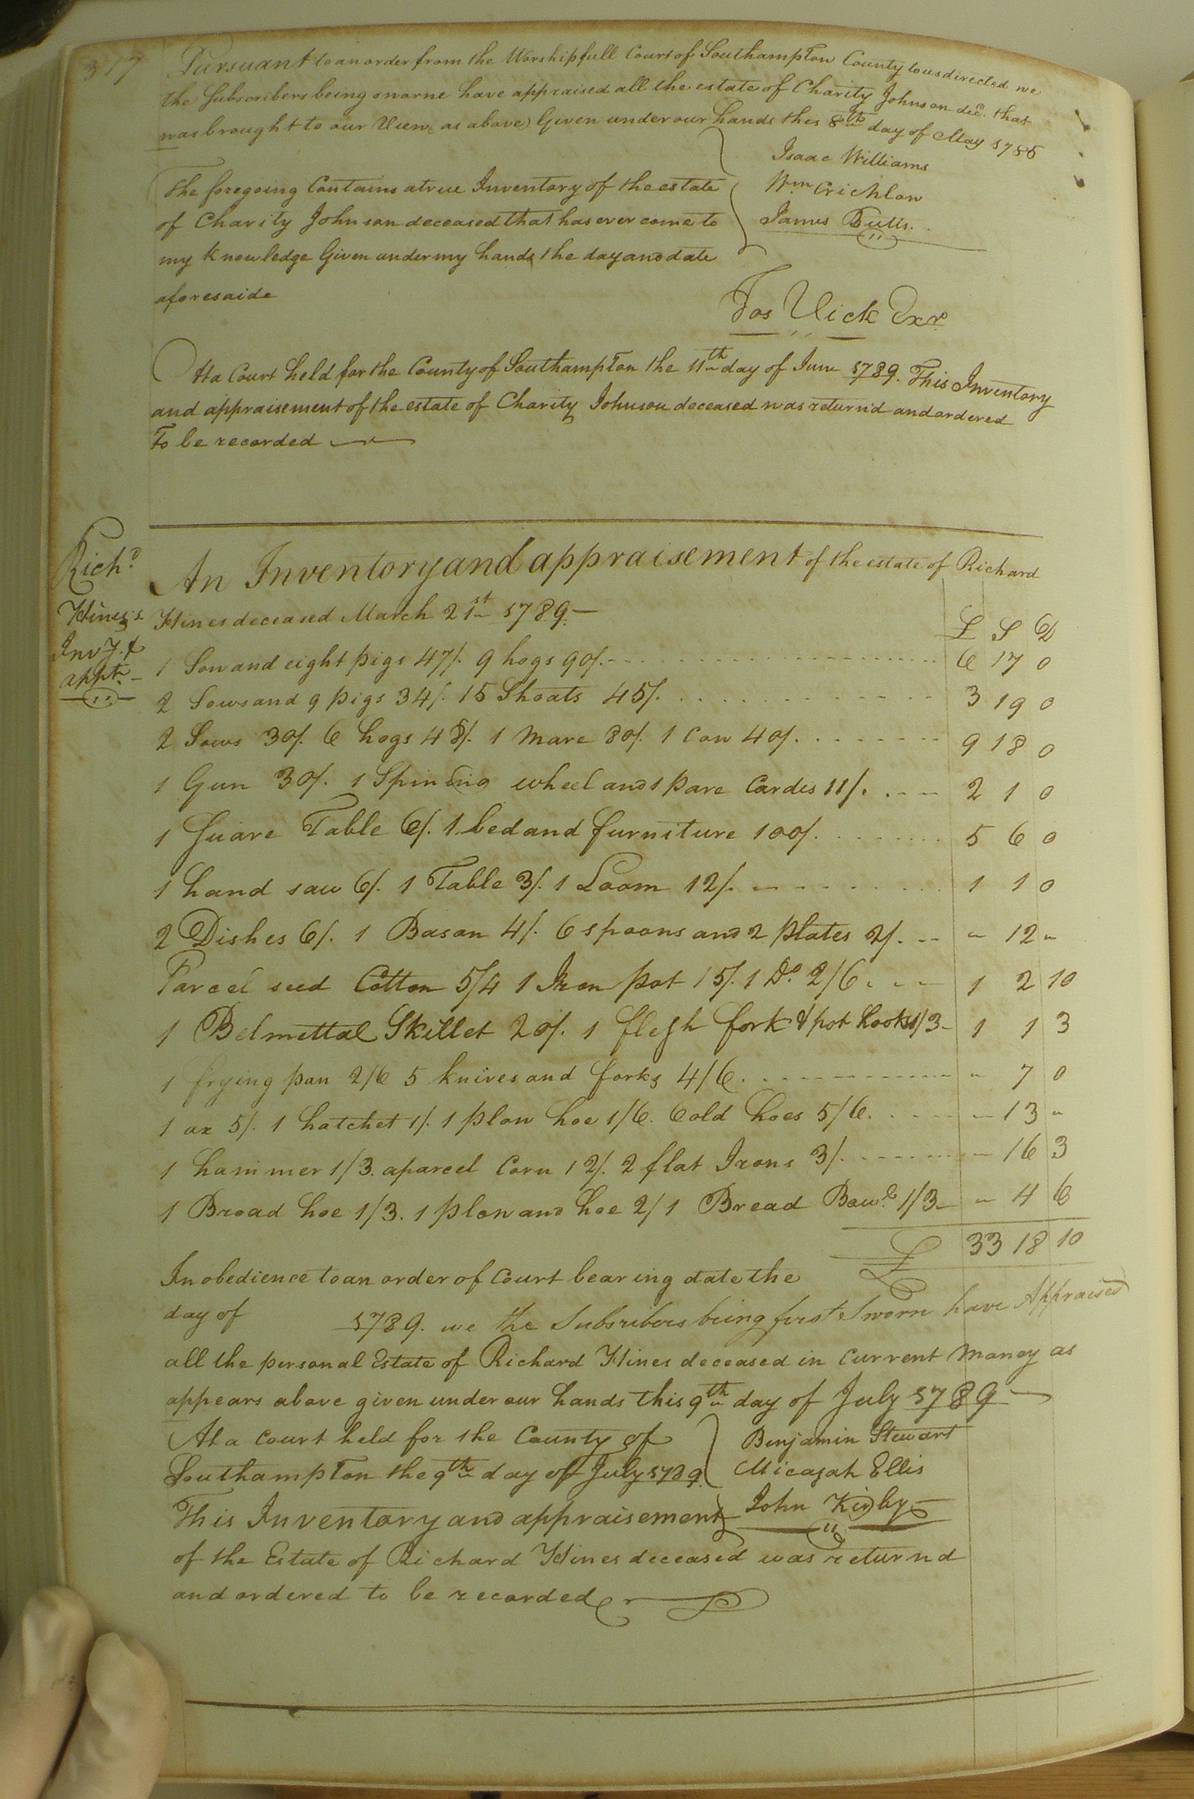 317 Pursuant to an order from the Worshipfull Court of Southampton County to us directed we
the Subscribers being sworne have appraised all the estate of Charity Johnson decd. that
was brought to our View, as above) Given under our hands this 8th day of May 1786
Isaac Williams
Wm Crichlow
James Butts.
The foregoing Contains a true Inventory of the estate
of Charity Johnson deceased that has ever come to
my Knowledge Given under my hand, the day and date
aforesaide
Jos Vick Exr.
At a Court held for the County of Southampton the 11th day of June 1789. This Inventory
and appraisement of the estate of Charity Johnson deceased was return'd and ordered
To be recorded
Richd.
Hines's
Invy. &
appt.
An Inventory and appraisement of the estate of Richard
Hines deceased March 21st 1789.
£ S D
1 Sow and eight pigs 47/. 9 hogs 90/. 6 17 0
2 Sows and 9 pigs 34/. 15 Shoats 45/. 3 19 0
2 Sows 30/. 6 hogs 48/. 1 Mare 80/. 1 Cow 40/. 9 18 0
1 Gun 30/. 1 Spinding wheel and 1 pare Cardes 11/. 2 1 0
1 Square Table 6/. 1 bed and furniture 100/. 5 6 0
1 hand saw 6/. 1 Table 3/. 1 Loom 12/. 1 1 0
2 Dishes 6/. 1 Bason 4/. 6 spoons and 2 plates 2/. " 12 "
Parcel seed Cotton 5/4 1 Iron pot 15/. 1 Do. 2/6. 1 2 10
1 Belmettal Skillet 20/. 1 flesh fork & pot hooks 1/3 1 1 3
1 frying pan 2/6 5 knives and forks 4/6. " 7 0
1 ax 5/. 1 hatchet 1/. 1 plow hoe 1/6. 6 old hoes 5/6. " 13 "
1 hammer 1/3. a parcel Corn 12/. 2 flat Irons 3/. " 16 3
1 Broad hoe 1/3. 1 plow and hoe 2/ 1 Bread Bowl 1/3 " 4 6
£ 33 18 10
In obedience to an order of Court bearing date the
day of 1789. we the Subscribers being first Sworn have Appraised
all the personal Estate of Richard Hines deceased in Current Money as
appears above given under our hands this 9th day of July 1789
At a Court held for the County of
Benjamin Stewart
Southampton the 9th day of July 1789.
Micajah Ellis
This Inventory and appraisement
John Kirby
of the Estate of Richard Hines deceased was returnd
and ordered to be recorded